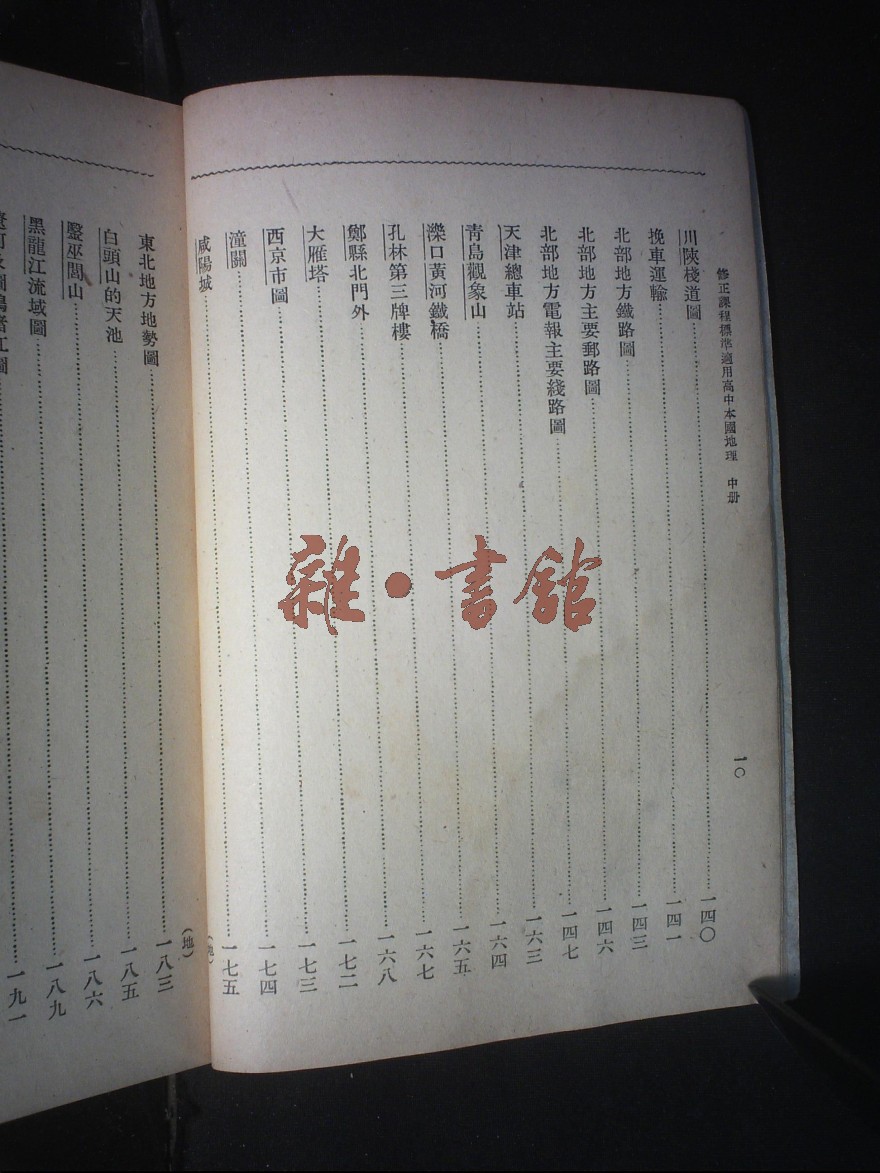 修正課程標準適用高中本國地理 中册
一〇
川陜棧道圖……一四〇
挽車運輸……一四一
北部地方鐵路圖……一四三
北部地方主要郵路圖……一四六
北部地方電報主要綫路圖……一四七
天津總車站……一六三
青島觀象山……一六四
濼口黃河鐵橋……一六五
孔林第三牌樓……一六七
鄭縣北門外……一六八
大雁塔……一七二
西京市圖……一七三
潼關……一七四
咸陽城……一七五
(地)
東北地方地勢圖……一八三
白頭山的天池……一八五
醫巫閭山……一八六
黑龍江流域圖……一八九
江圖……一九一
(地)
雜·書館